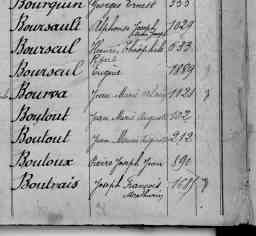 Bourquin Georges Ernest 555
Boursault Alphonse Joseph 1029
Bourseul Henri, Théophile 633
René
Bourseul Eugène 1889
Bourva Jean Marie 1028
Boutout Jean Marie August 302
Boutout Jean Marie 212
Boutoux Pierre Joseph Jean 890
Boutrais Joseph François 1685
Mathurin